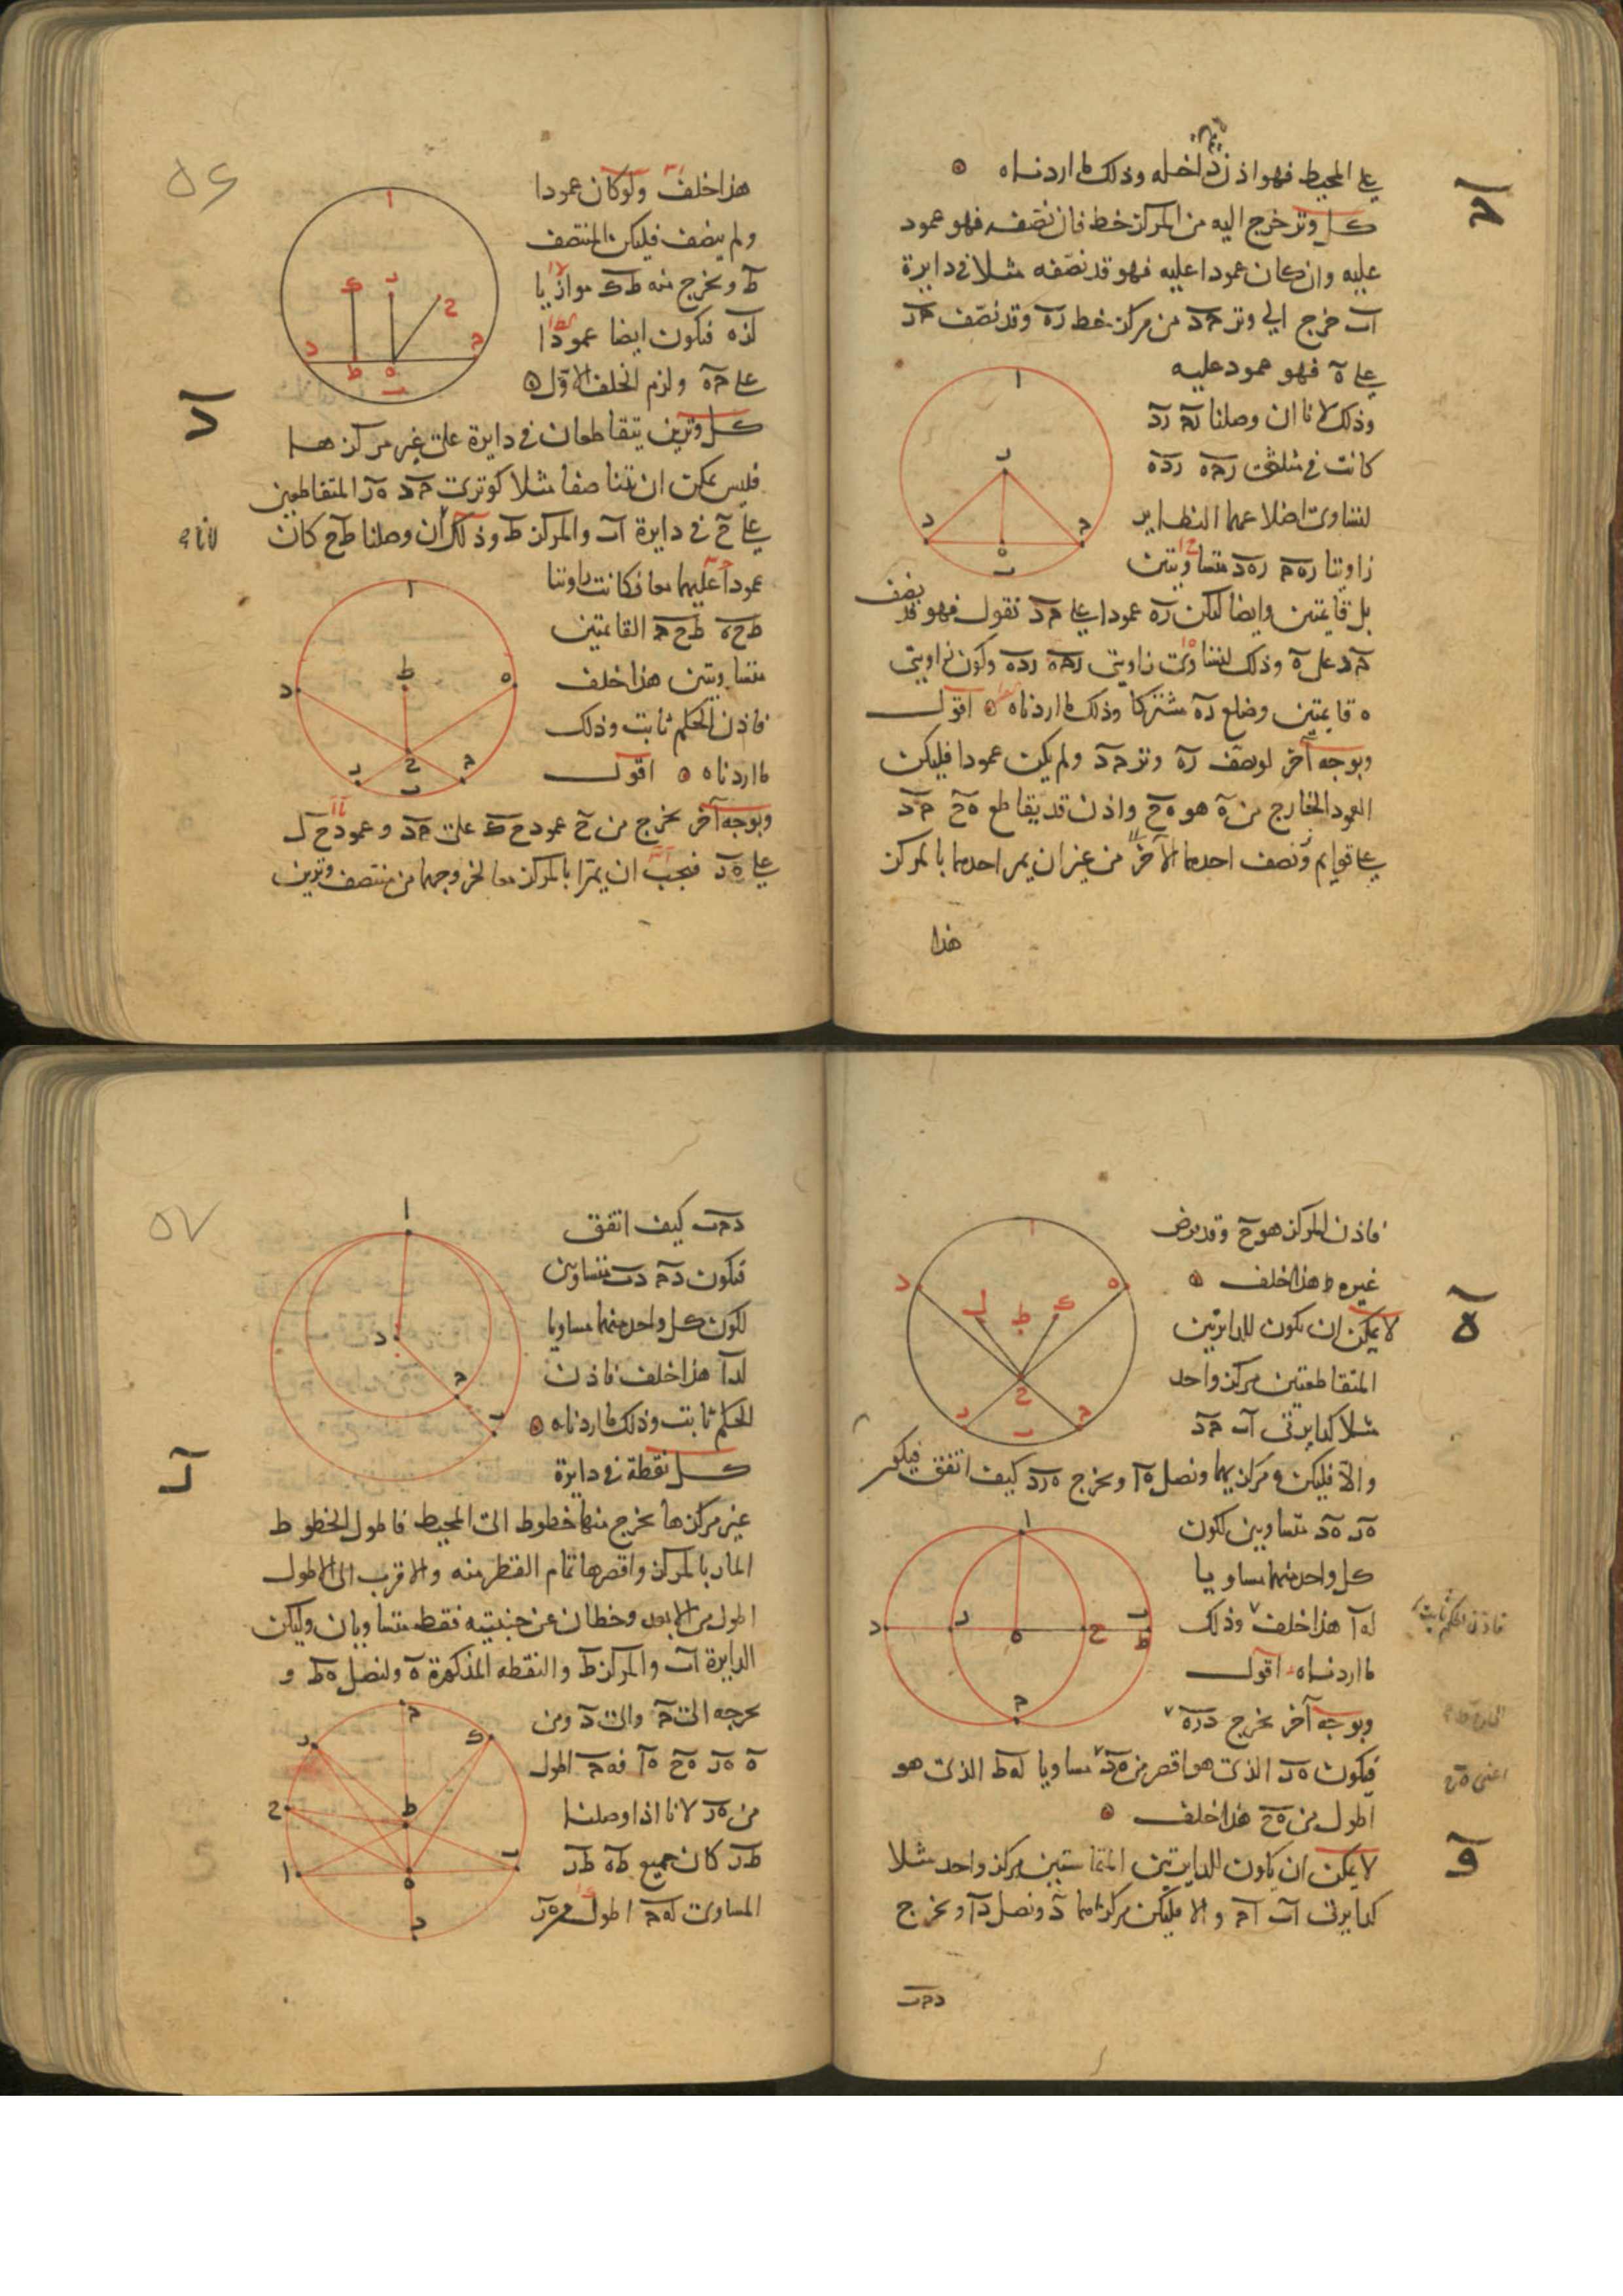 على المحيط فهو اذن داخله وذلك ما اردناه
ج
كل وتر خرج اليه من المركز خط فان نصفه فهو عمود
عليه وان كان عمودا عليه فهو قد نصفه مثلا في دايرة
اب خرج الى وتر جد من مركز خط ره وقد نصف جد
على ه فهو عمود عليه
وذلك لانا ان وصلنا رج رد
كانت في مثلثى رجه رده
لتساوى اضلاعهما النظاير
زاويتا رهج رهد متساويتين
بل قايمتين وايضا ليكن ره عمودا على جد نقول فهو قد نصف
جد على ه وذلك لتساوى زاويتى رجه رده وكون زاويتى
ه قايمتين وضلع ره مشتركا وذلك ما اردناه اقول
وبوجه آخر لو نصف ره وتر جد ولم يكن عمودا فليكن
العمود الخارج من ه هو هح واذن قد يقاطع هح جد
على قوايم ونصف احدهما الآخر من غير ان يمر احدهما بالمركز
هذا
٥٦
هذا خلف ولو كان عمودا
ولم ينصف فليكن المنتصف
ط ونخرج منه طك موازيا
لره فيكون ايضا عمودا
على جه ولزم الخلف الاول
د
كل وترين يتقاطعان في دايرة على غير مركزها
فليس يمكن ان يتناصفا مثلا كوترى جد هر المتقاطعين
على ح في دايرة اب والمركز ط وذلك لان وصلنا طح كان
عمودا عليهما معا فكانت زاويتا
طحه طحج القايمتين
متساويتين هذا خلف
فاذن الحكم ثابت وذلك
ما اردناه اقول
وبوجه آخر نخرج من ح عمود حك على جد وعمود حل
على هر فيجب ان يمرا بالمركز معا لخروجهما من منتصف وترين
فاذن المركز هو ح وقد فرض
غيره ط هذا خلف
ه
لا يمكن ان يكون للدايرتين
المتقاطعتين مركز واحد
مثلا كدايرتى اب جد
والا فليكن ه مركزيهما ونصل ها ونخرج هرد كيف اتفق فيكون
هر هد متساويين لكون
كل واحد منهما مساويا
لها هذا خلف وذلك
فاذن الحكم ثابت
ما اردناه اقول
وبوجه آخر نخرج دره
فيكون هر الذى هو اقصر من هد مساويا له ط الذى هو
اعنى هح
اطول من هح هذا خلف
و
لا يمكن ان يكون للدايرتين المتماستين مركز واحد مثلا
كدايرتى اب اج والا فليكن مركزاهما د ونصل دا ونخرج
دجب
٥٧
دجب كيف اتفق
فيكون دج دب متساويين
لكون كل واحد منهما مساويا
لدا هذا خلف فاذن
الحكم ثابت وذلك ما اردناه
ز
كل نقطة في دايرة
غير مركزها نخرج منها خطوط الى المحيط فاطول الخطوط
المار بالمركز واقصرها تمام القطر منه والاقرب الى الاطول
اطول من الابعد وخطان عن جنبتيه فقط متساويان وليكن
الدايرة اب والمركز ط والنقطه المذكورة ه ولنصل هط و
نخرجه الى ج والى د ومن
ه هر هح ها فهج اطول
من هر لانا اذا وصلنا
طر كان جميع طه طر
المساوى لهج اطول من هر